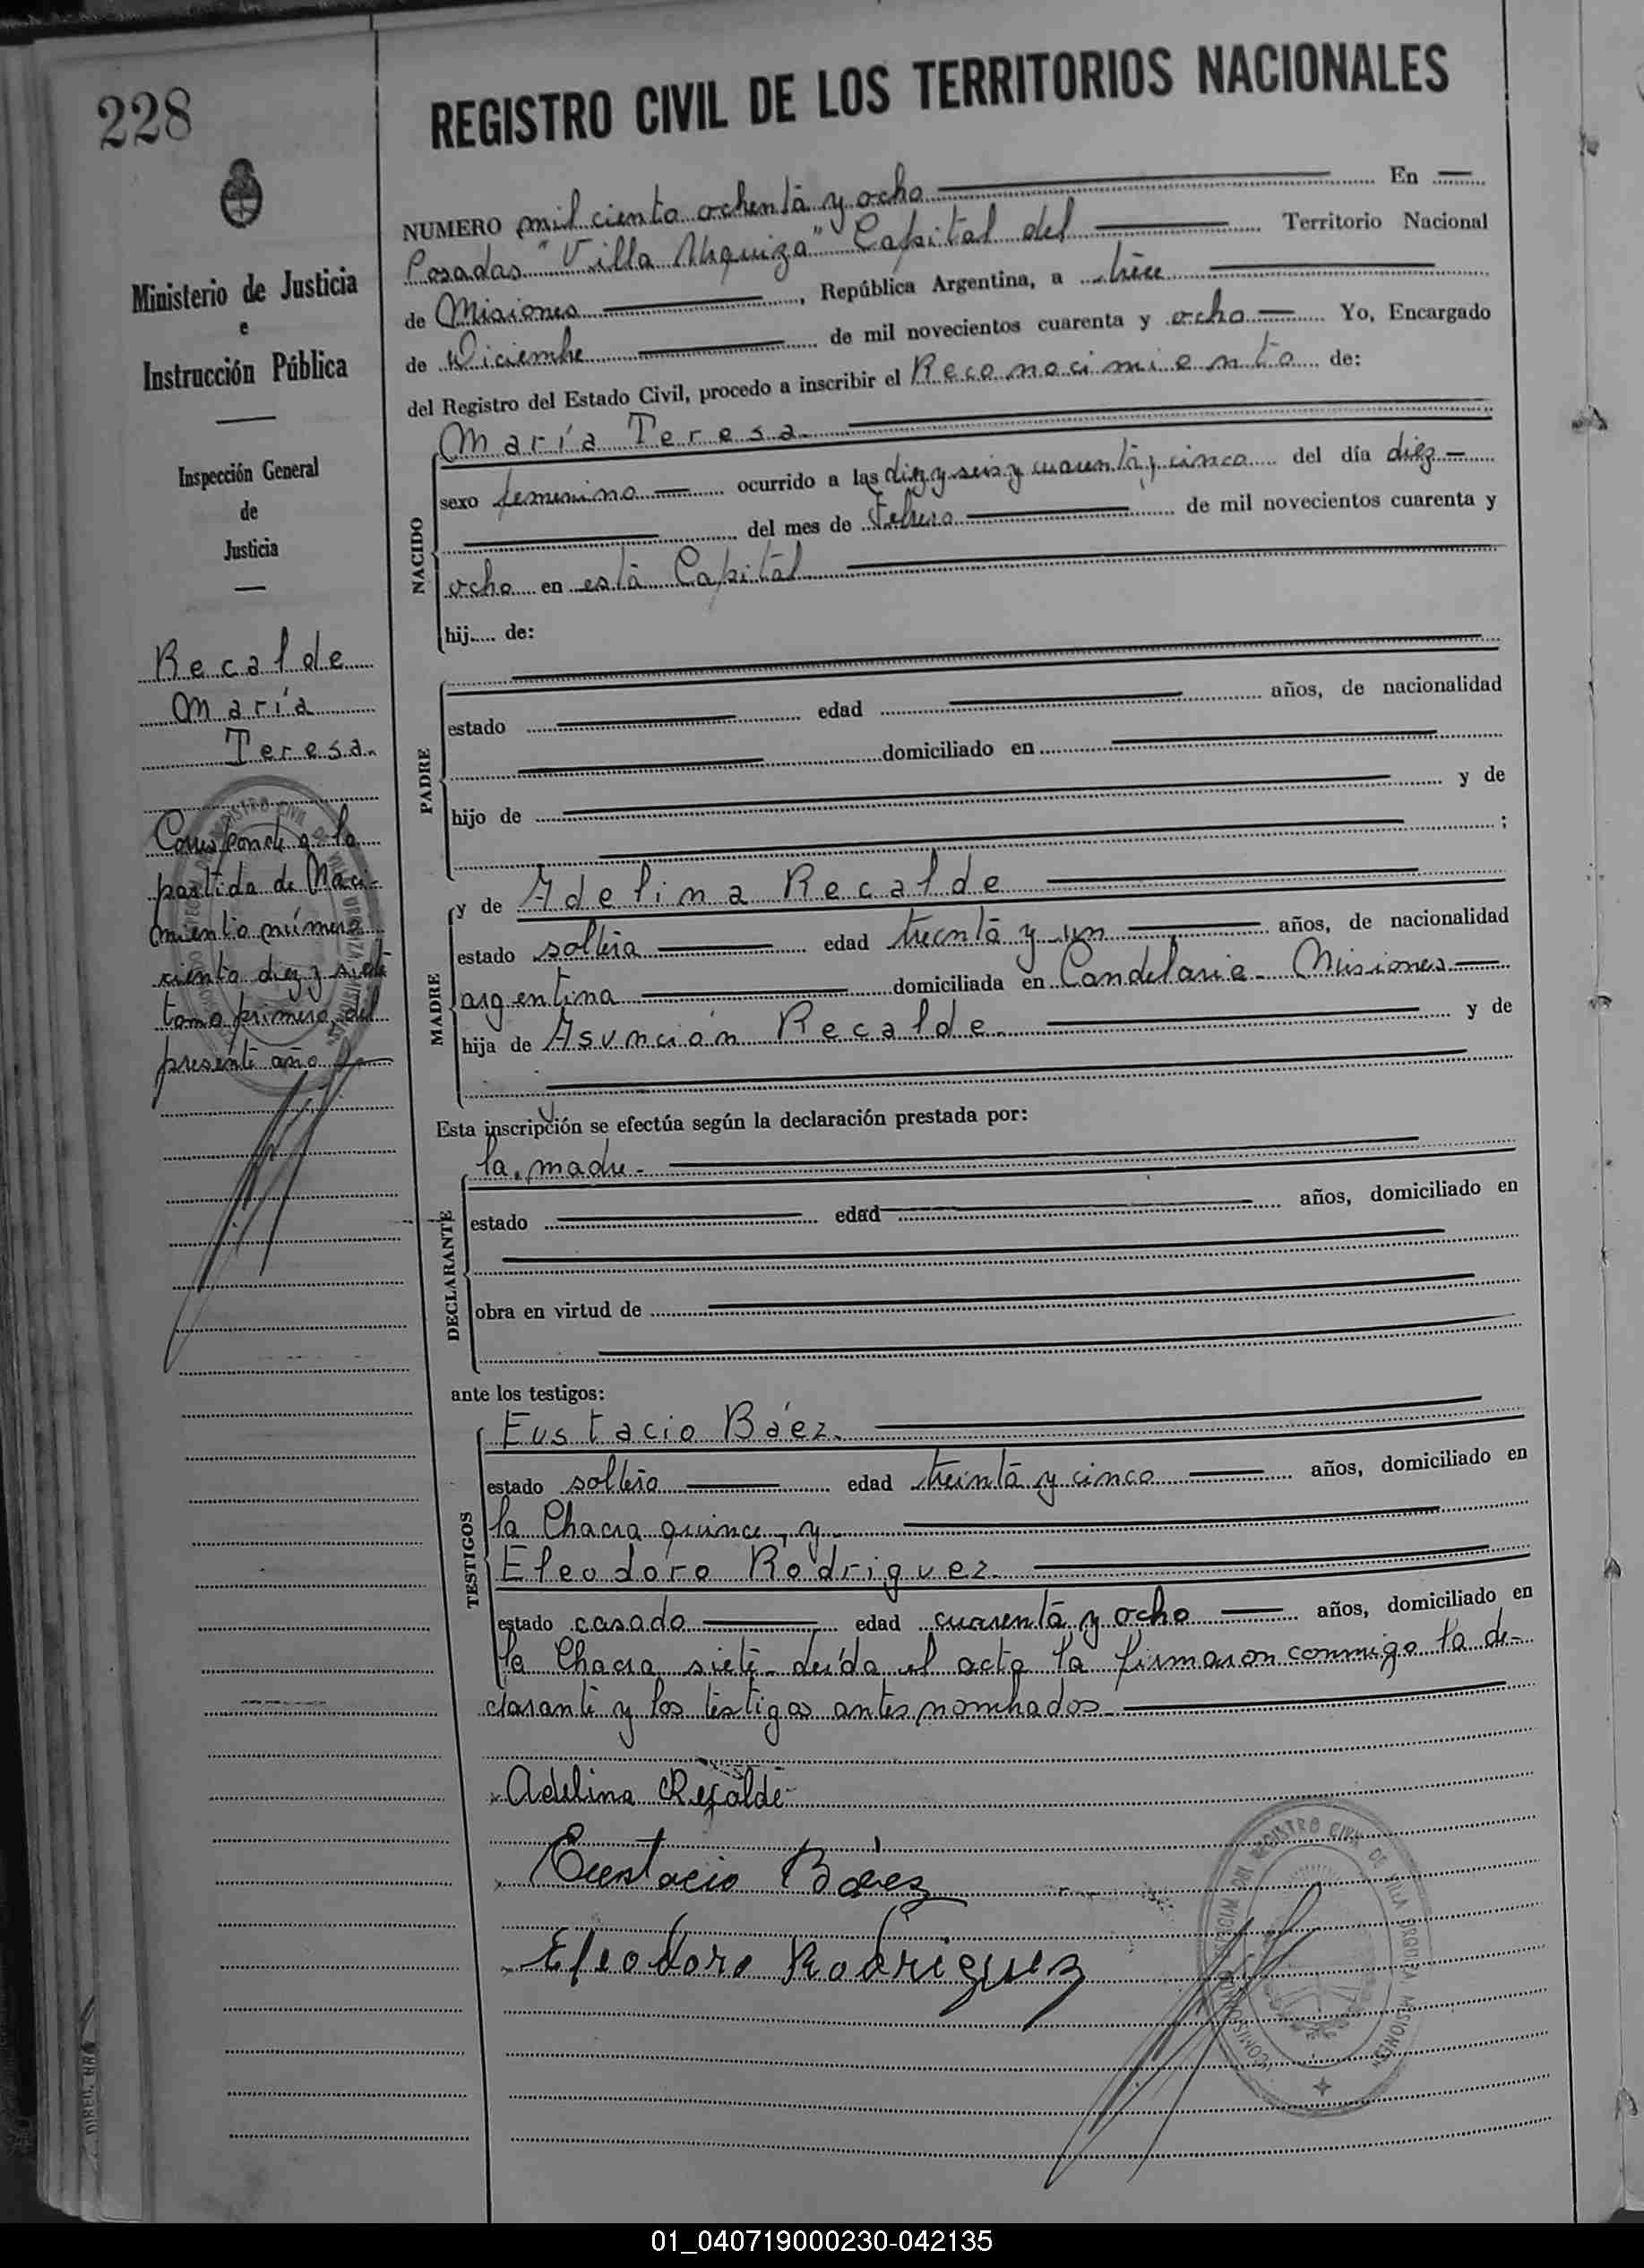 228
REGISTRO CIVIL DE LOS TERRITORIOS NACIONALES
NUMERO mil ciento ochenta y ocho En
Posadas "Villa Urquiza" Capital del Territorio Nacional
de Misiones, República Argentina, a trece
de Diciembre de mil novecientos cuarenta y ocho Yo, Encargado
del Registro del Estado Civil, procedo a inscribir el Reconocimiento de:
María Teresa
NACIDO
sexo femenino ocurrido a las diez y seis y cuarenta y cinco del día diez
del mes de Febrero de mil novecientos cuarenta y
ocho en esta Capital
hij de:
PADRE
estado edad años, de nacionalidad
domiciliado en
hijo de y de
;
MADRE
y de Adelina Recalde
estado soltera edad treinta y un años, de nacionalidad
argentina domiciliada en Candelaria - Misiones
hija de Asunción Recalde. y de
Esta inscripción se efectúa según la declaración prestada por:
la madre -
DECLARANTE
estado edad años, domiciliado en
obra en virtud de
ante los testigos:
TESTIGOS
Eustacio Báez.
estado soltero edad treinta y cinco años, domiciliado en
la Chacra quince, y
Eleodoro Rodriguez.
estado casado edad cuarenta y ocho años, domiciliado en
la Chacra siete - leída el acta la firmaron conmigo la de-
clarante y los testigos antes nombrados.
Adelina Recalde
Eustacio Báez
Eleodoro Rodriguez
Ministerio de Justicia
e
Instrucción Pública
Inspección General
de
Justicia
Recalde
María
Teresa.
Corresponde a la
partida de Naci-
miento número
ciento diez y siete
tomo primero, del
presente año
REGISTRO CIVIL DE VILLA URQUIZA MISIONES
01_040719000230-042135